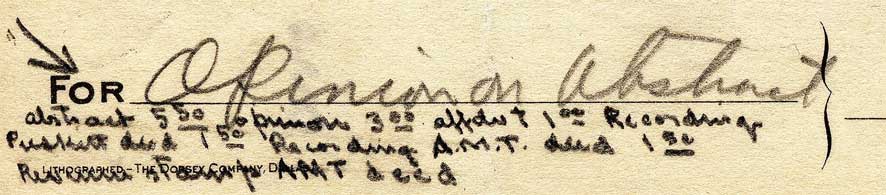 FOR Opinion on Abstract
abstract 5 50 opinion 3 00 affdvt 1 00 Recording
Puskitt deed 1 50 Recording A.M.T. deed 1 50
LITHOGRAPHED - THE DORSEY COMPANY,
Revenue stamp AMT deed